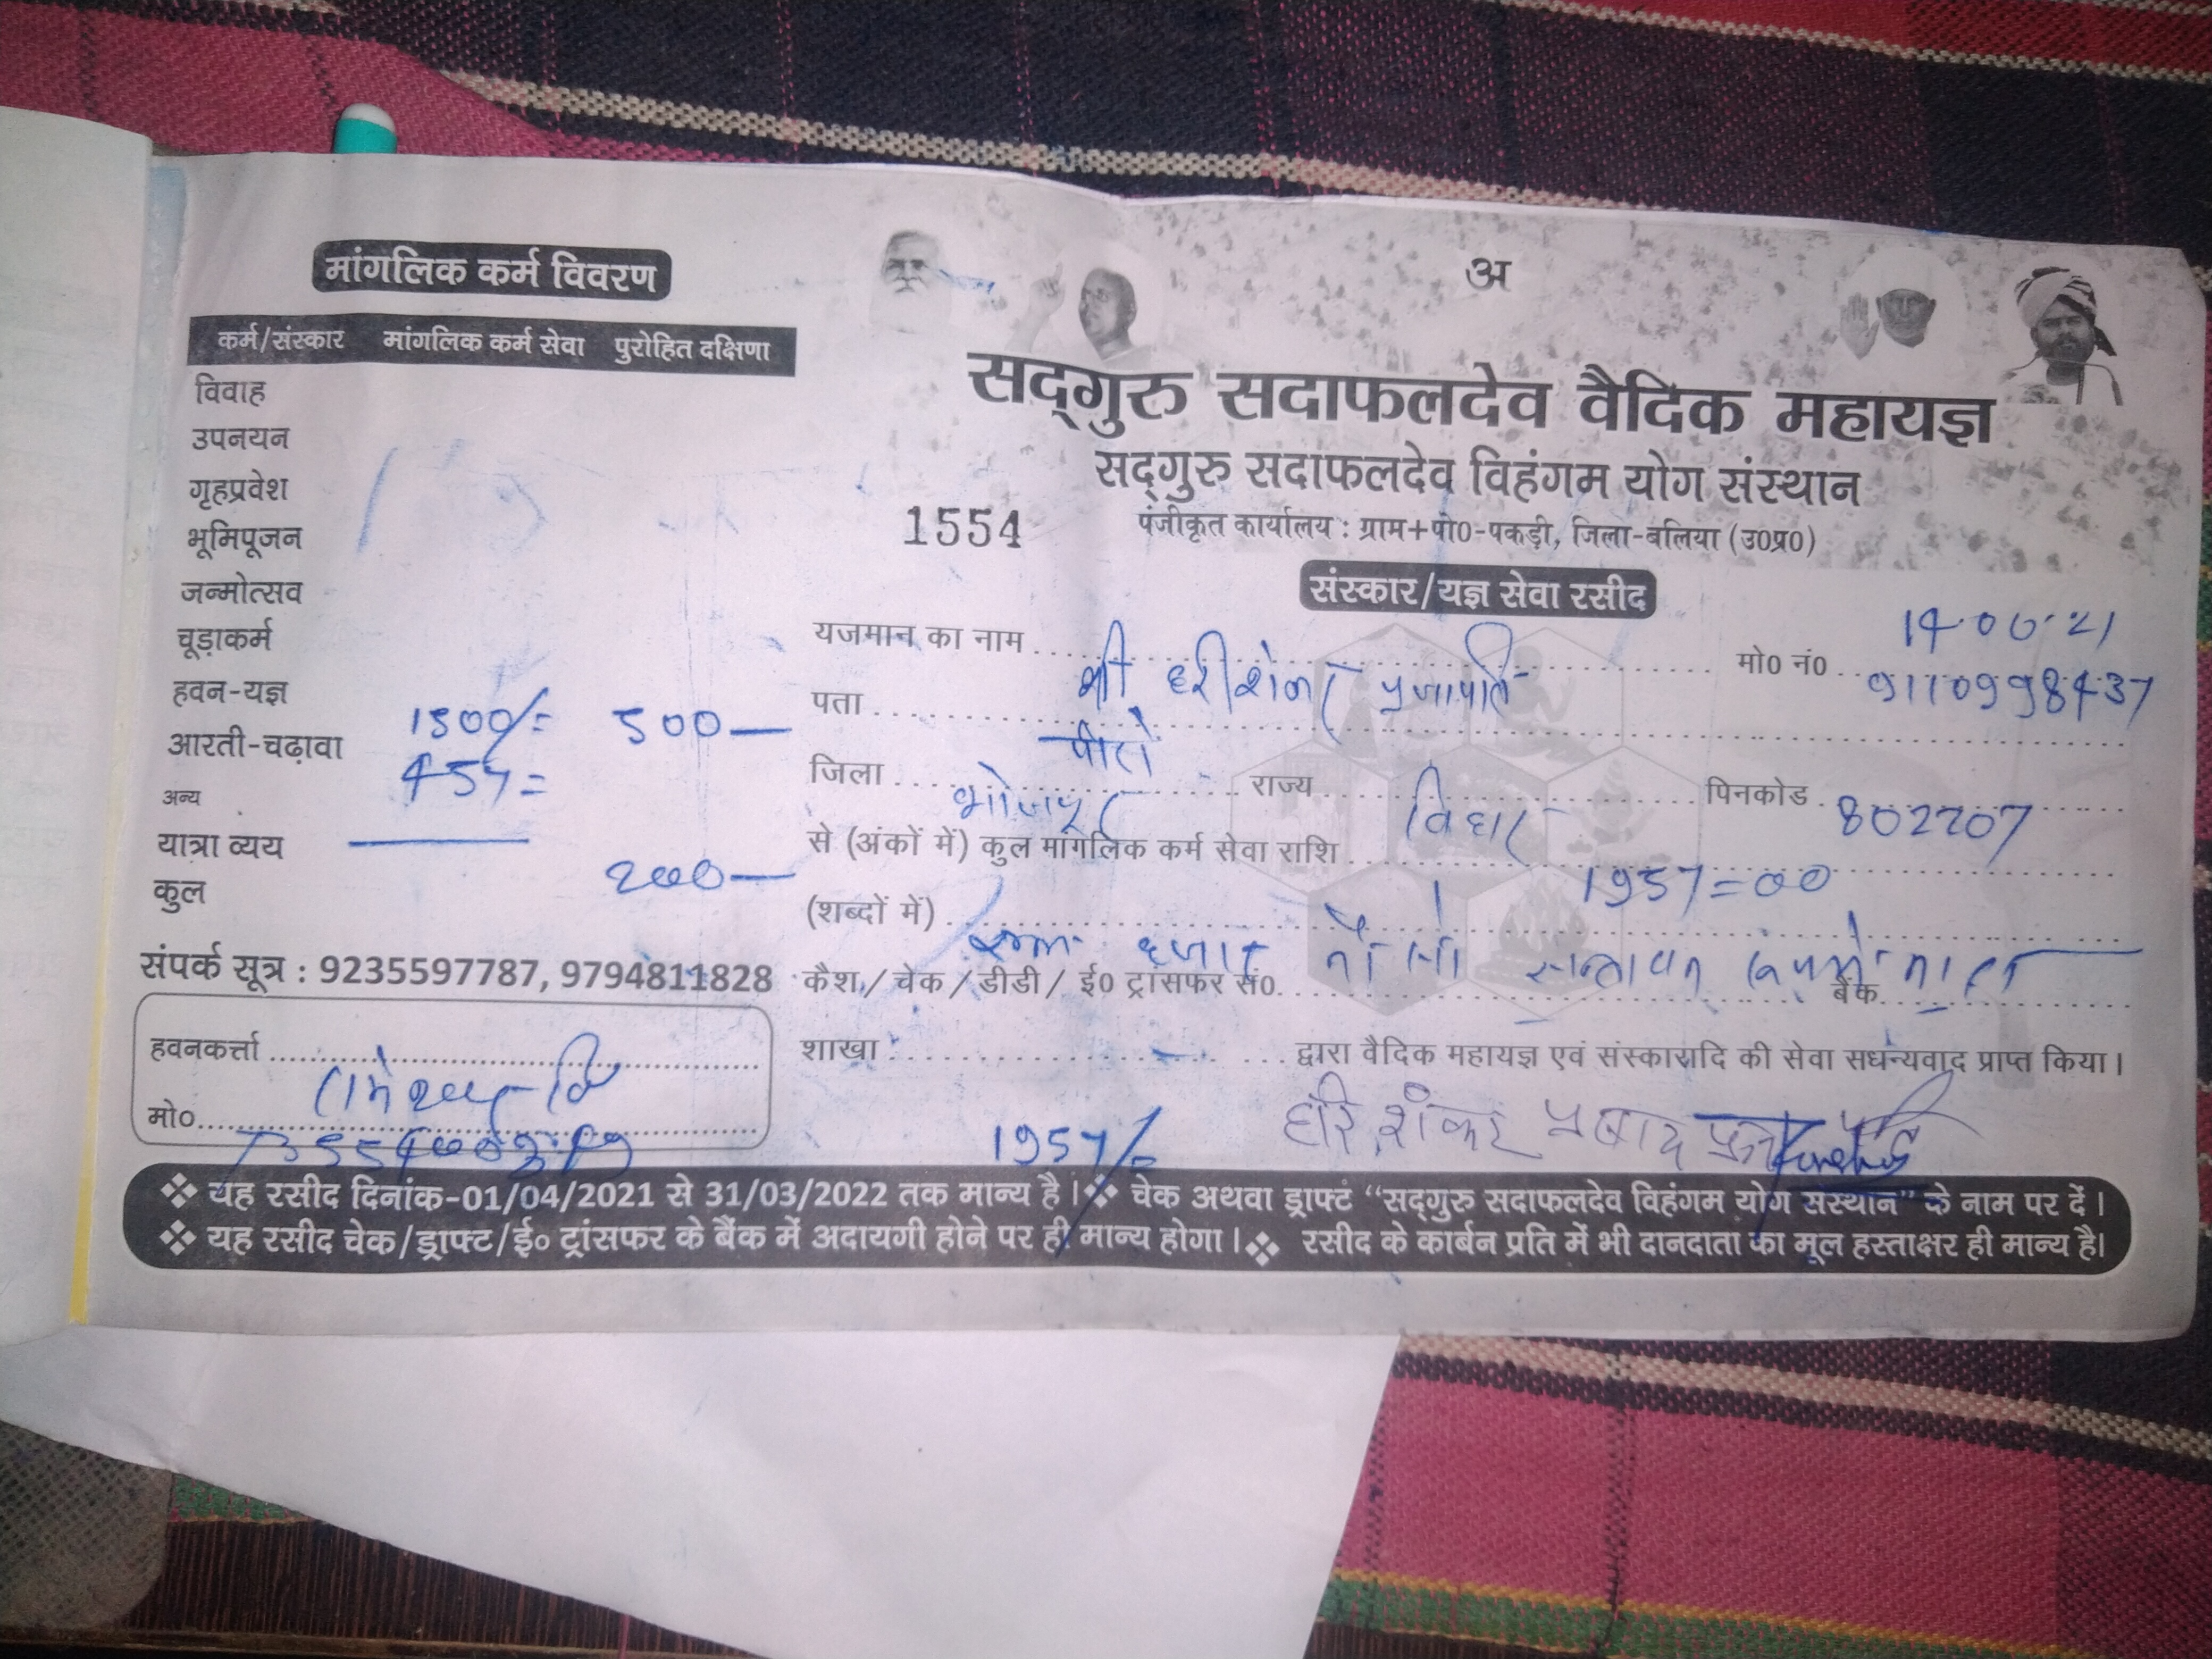 मांगलिक कर्म विवरण
कर्म/संस्कार मांगलिक कर्म सेवा पुरोहित दक्षिणा
विवाह
उपनयन
गृहप्रवेश
भूमिपूजन
जन्मोत्सव
चूड़ाकर्म
हवन-यज्ञ
1500/= 500—
आरती-चढ़ावा
457=
अन्य
यात्रा व्यय
200—
कुल
संपर्क सूत्र : 9235597787, 9794811828
हवनकर्त्ता
मो०
अ
सद्गुरु सदाफलदेव वैदिक महायज्ञ
सद्गुरु सदाफलदेव विहंगम योग संस्थान
1554
पंजीकृत कार्यालय : ग्राम+पो0-पकड़ी, जिला-बलिया (उ0प्र0)
संस्कार/यज्ञ सेवा रसीद
14-06-21
यजमान का नाम श्री हरीशंकर प्रजापति मो0 नं0 9110998437
पता पीरो
जिला भोजपुर राज्य बिहार पिनकोड 802207
से (अंकों में) कुल मांगलिक कर्म सेवा राशि 1957=00
(शब्दों में) एक हजार नौ सौ सन्तावन रूपये मात्र
कैश / चेक / डीडी / ई0 ट्रांसफर सं0 बैंक
शाखा द्वारा वैदिक महायज्ञ एवं संस्कारादि की सेवा सधन्यवाद प्राप्त किया।
1957/= हरि शंकर प्रसाद
❖ यह रसीद दिनांक-01/04/2021 से 31/03/2022 तक मान्य है। ❖ चेक अथवा ड्राफ्ट "सद्गुरु सदाफलदेव विहंगम योग संस्थान" के नाम पर दें।
❖ यह रसीद चेक/ड्राफ्ट/ई० ट्रांसफर के बैंक में अदायगी होने पर ही मान्य होगा। ❖ रसीद के कार्बन प्रति में भी दानदाता का मूल हस्ताक्षर ही मान्य है।